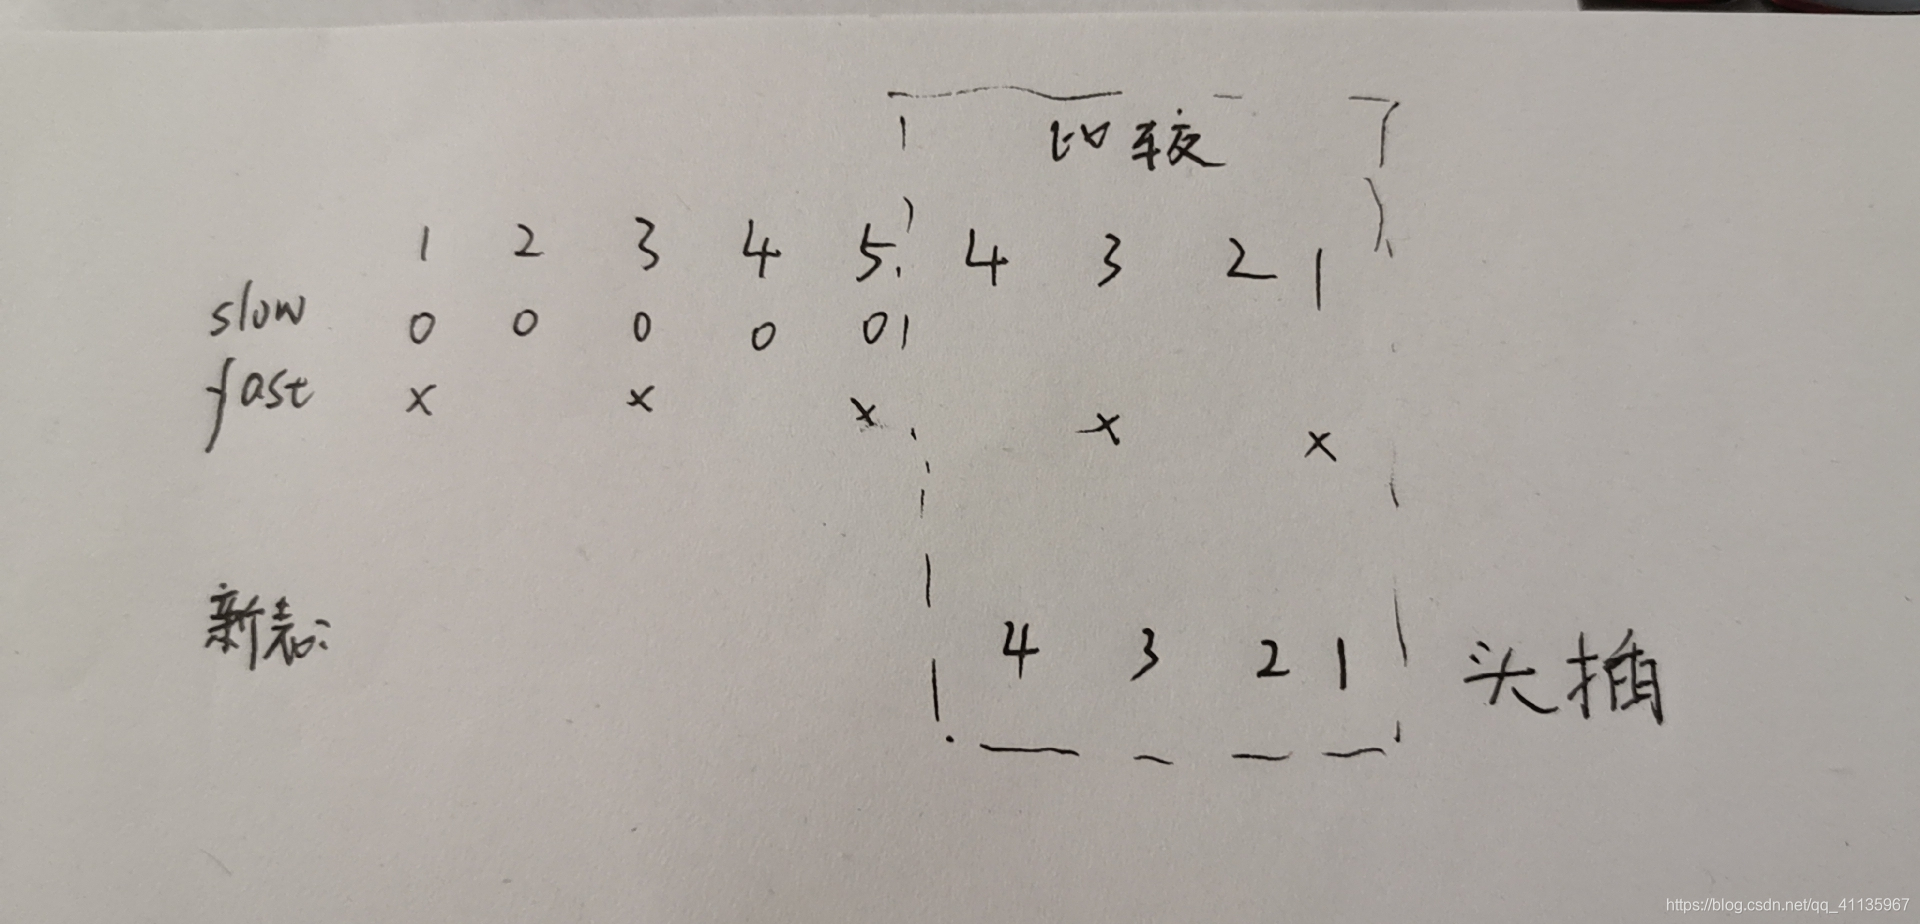 比较
1 2 3 4 5 4 3 2 1
slow 0 0 0 0 0
fast x x x x x
新表: 4 3 2 1 头插
https://blog.csdn.net/qq_41135967